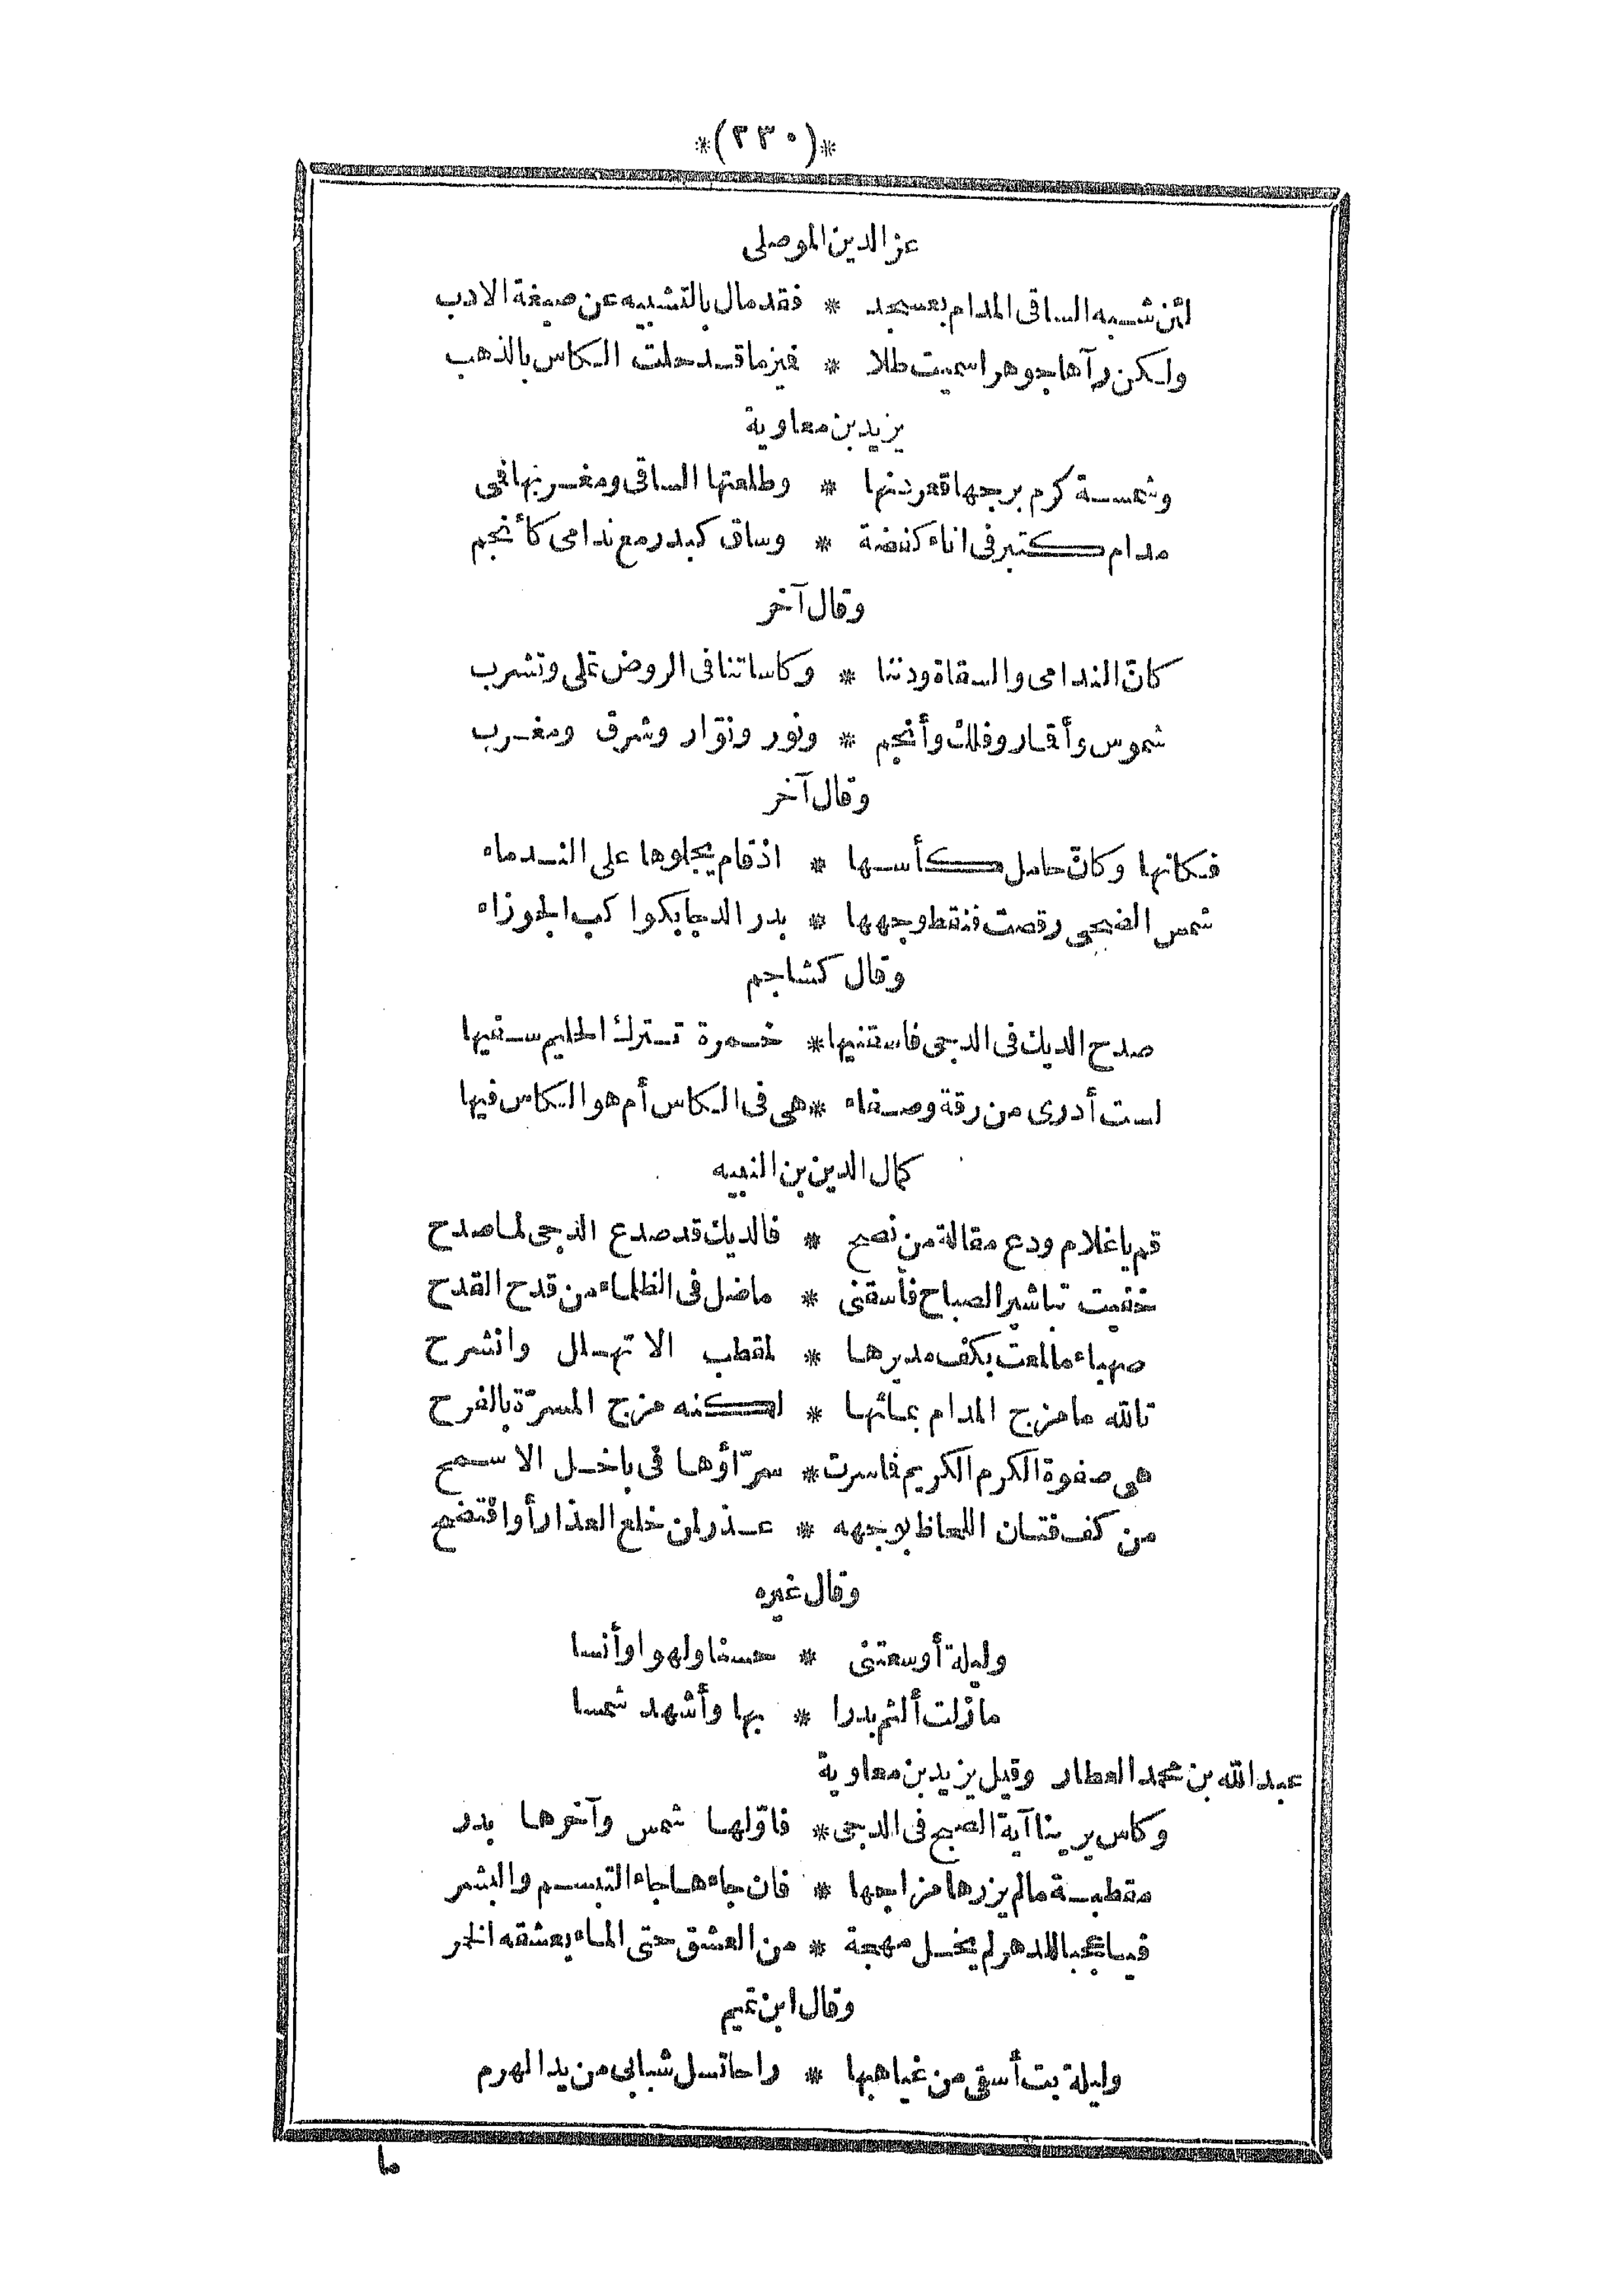 *(٢٣٠)*
عز الدين الموصلى
لئن شبه الساقى المدام بعسجد * فقد مال بالتشبيه عن صيغة الادب
ولكن رآها جوهرا سميت طلا * فيزما قد حلت الكاس بالذهب
يزيد بن معاوية
وشمسة كرم برجها قعر دنها * وطلعتها الساقى ومغربها فى
مدام كتبر فى اناء كفضة * وساق كبدر مع ندامى كأنجم
وقال آخر
كانّ الندامى والسقاة ودننا * وكاساتنا فى الروض تملى وتشرب
شموس وأقمار وفلك وأنجم * ونور ونوّار وشرق ومغرب
وقال آخر
فكانها وكانّ حامل كأسها * اذ قام يجلوها على الندماء
شمس الضحى رقصت فنقط وجهها * بدر الدجا بكواكب الجوزاء
وقال كشاجم
صدح الديك فى الدجى فاسقنيها * خمرة تترك الحليم سفيها
لست أدرى من رقة وصفاء * هى فى الكاس أم هو الكاس فيها
كمال الدين بن النبيه
قم يا غلام ودع مقالة من نصح * فالديك قد صدع الدجى لما صدح
خفيت تباشير الصباح فأسقنى * ما ضل فى الظلماء من قدح القدح
صهباء ما لمعت بكف مديرها * لمقطب الا تهلل وانشرح
تالله ما مزج المدام بمائها * لكنه مزج المسرّة بالفرح
هى صفوة الكرم الكريم فاسرت * سرّاؤها فى باخل الا سمح
من كف فتان اللحاظ بوجهه * عذر لمن خلع العذار أوا فتضح
وقال غيره
وليلة أوسعتنى * حسنا ولهوا وأنسا
مازلت ألثم بدرا * بها وأشهد شمسا
عبد الله بن محمد العطار وقيل يزيد بن معاوية
وكاس يرينا آية الصبح فى الدجى * فاوّلها شمس وآخرها بدر
مقطبة مالم يزرها مزاجها * فان جاءها جاء التبسم والبشر
فيا عجبا للدهر لم يخل مهجة * من العشق حتى الماء يعشقه الخمر
وقال ابن تميم
وليلة بت أسقى من غياهبها * راحا تسل شبابى من يد الهرم
ما